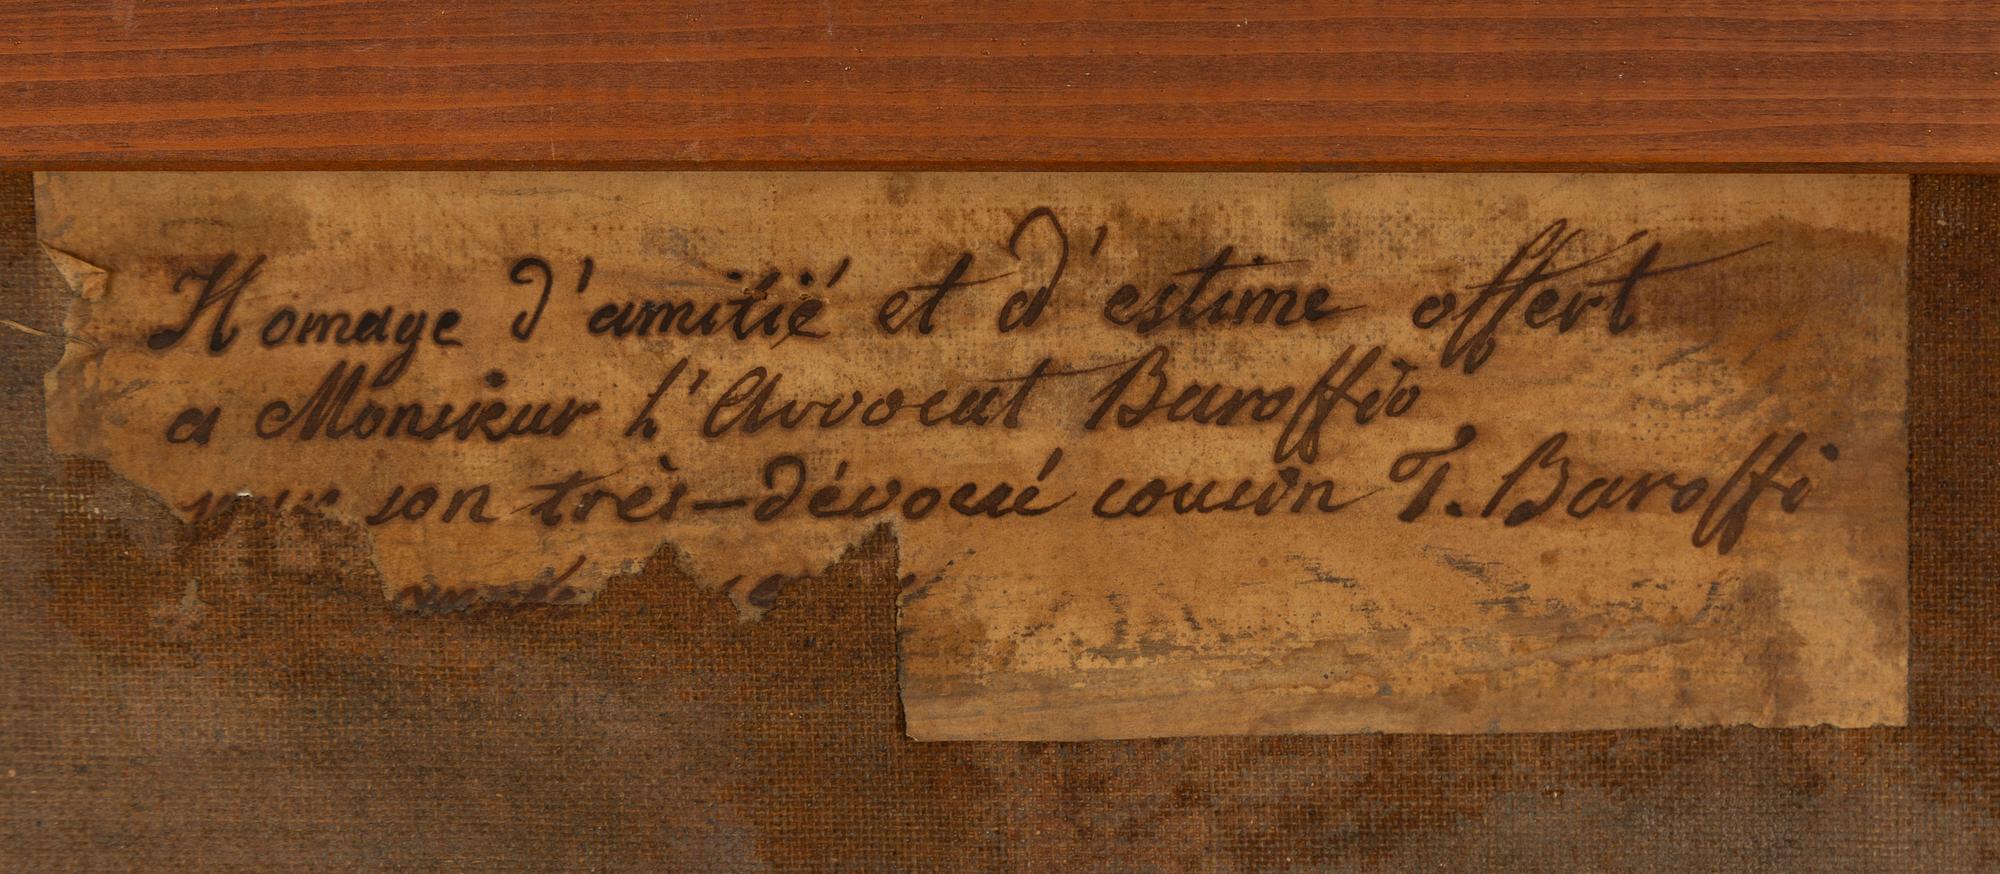 Homage d'amitié et d'estime offert
a Monsieur l'Avvocat Baroffio
son très-dévoué cousin T. Baroffi